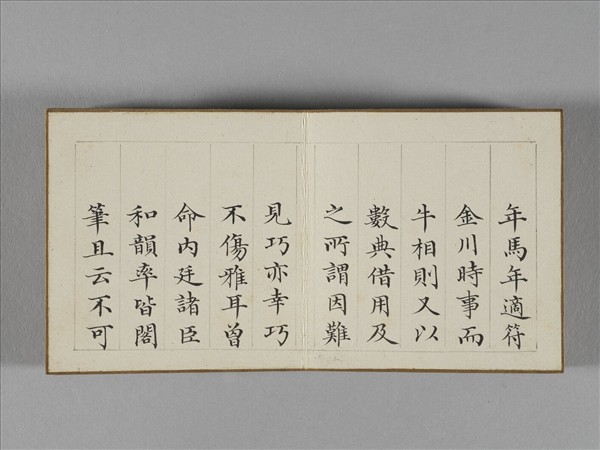 年馬年適符
金川時事而
牛相則又以
數典借用及
之所謂因難
見巧亦幸巧
不傷雅耳曾
命內廷諸臣
和韻率皆閣
筆且云不可